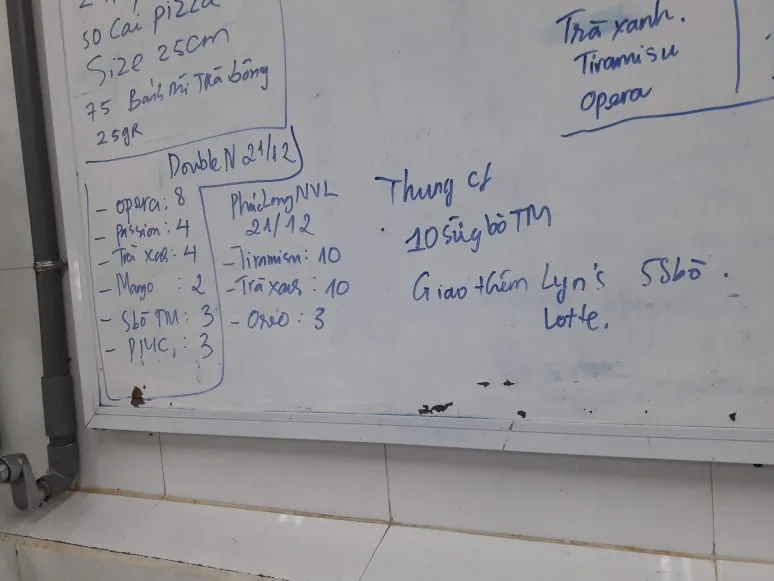 50 Cái pizza
Size 25cm
75 Bánh mì Trà bông
25gR
Double N 21/12
- opera: 8
- passion: 4
- Trà xah: 4
- Mango : 2
- Sbò TM: 3
- P/4C, : 3
PhúcLong NVL
21/12
- Tiramisu: 10
- Trà xah : 10
- Oreo : 3
Trà xanh.
Tiramisu
opera
Thung cf
10 Sừg bò TM
Giao thêm Lyn's 5 Sbò.
Lotte.